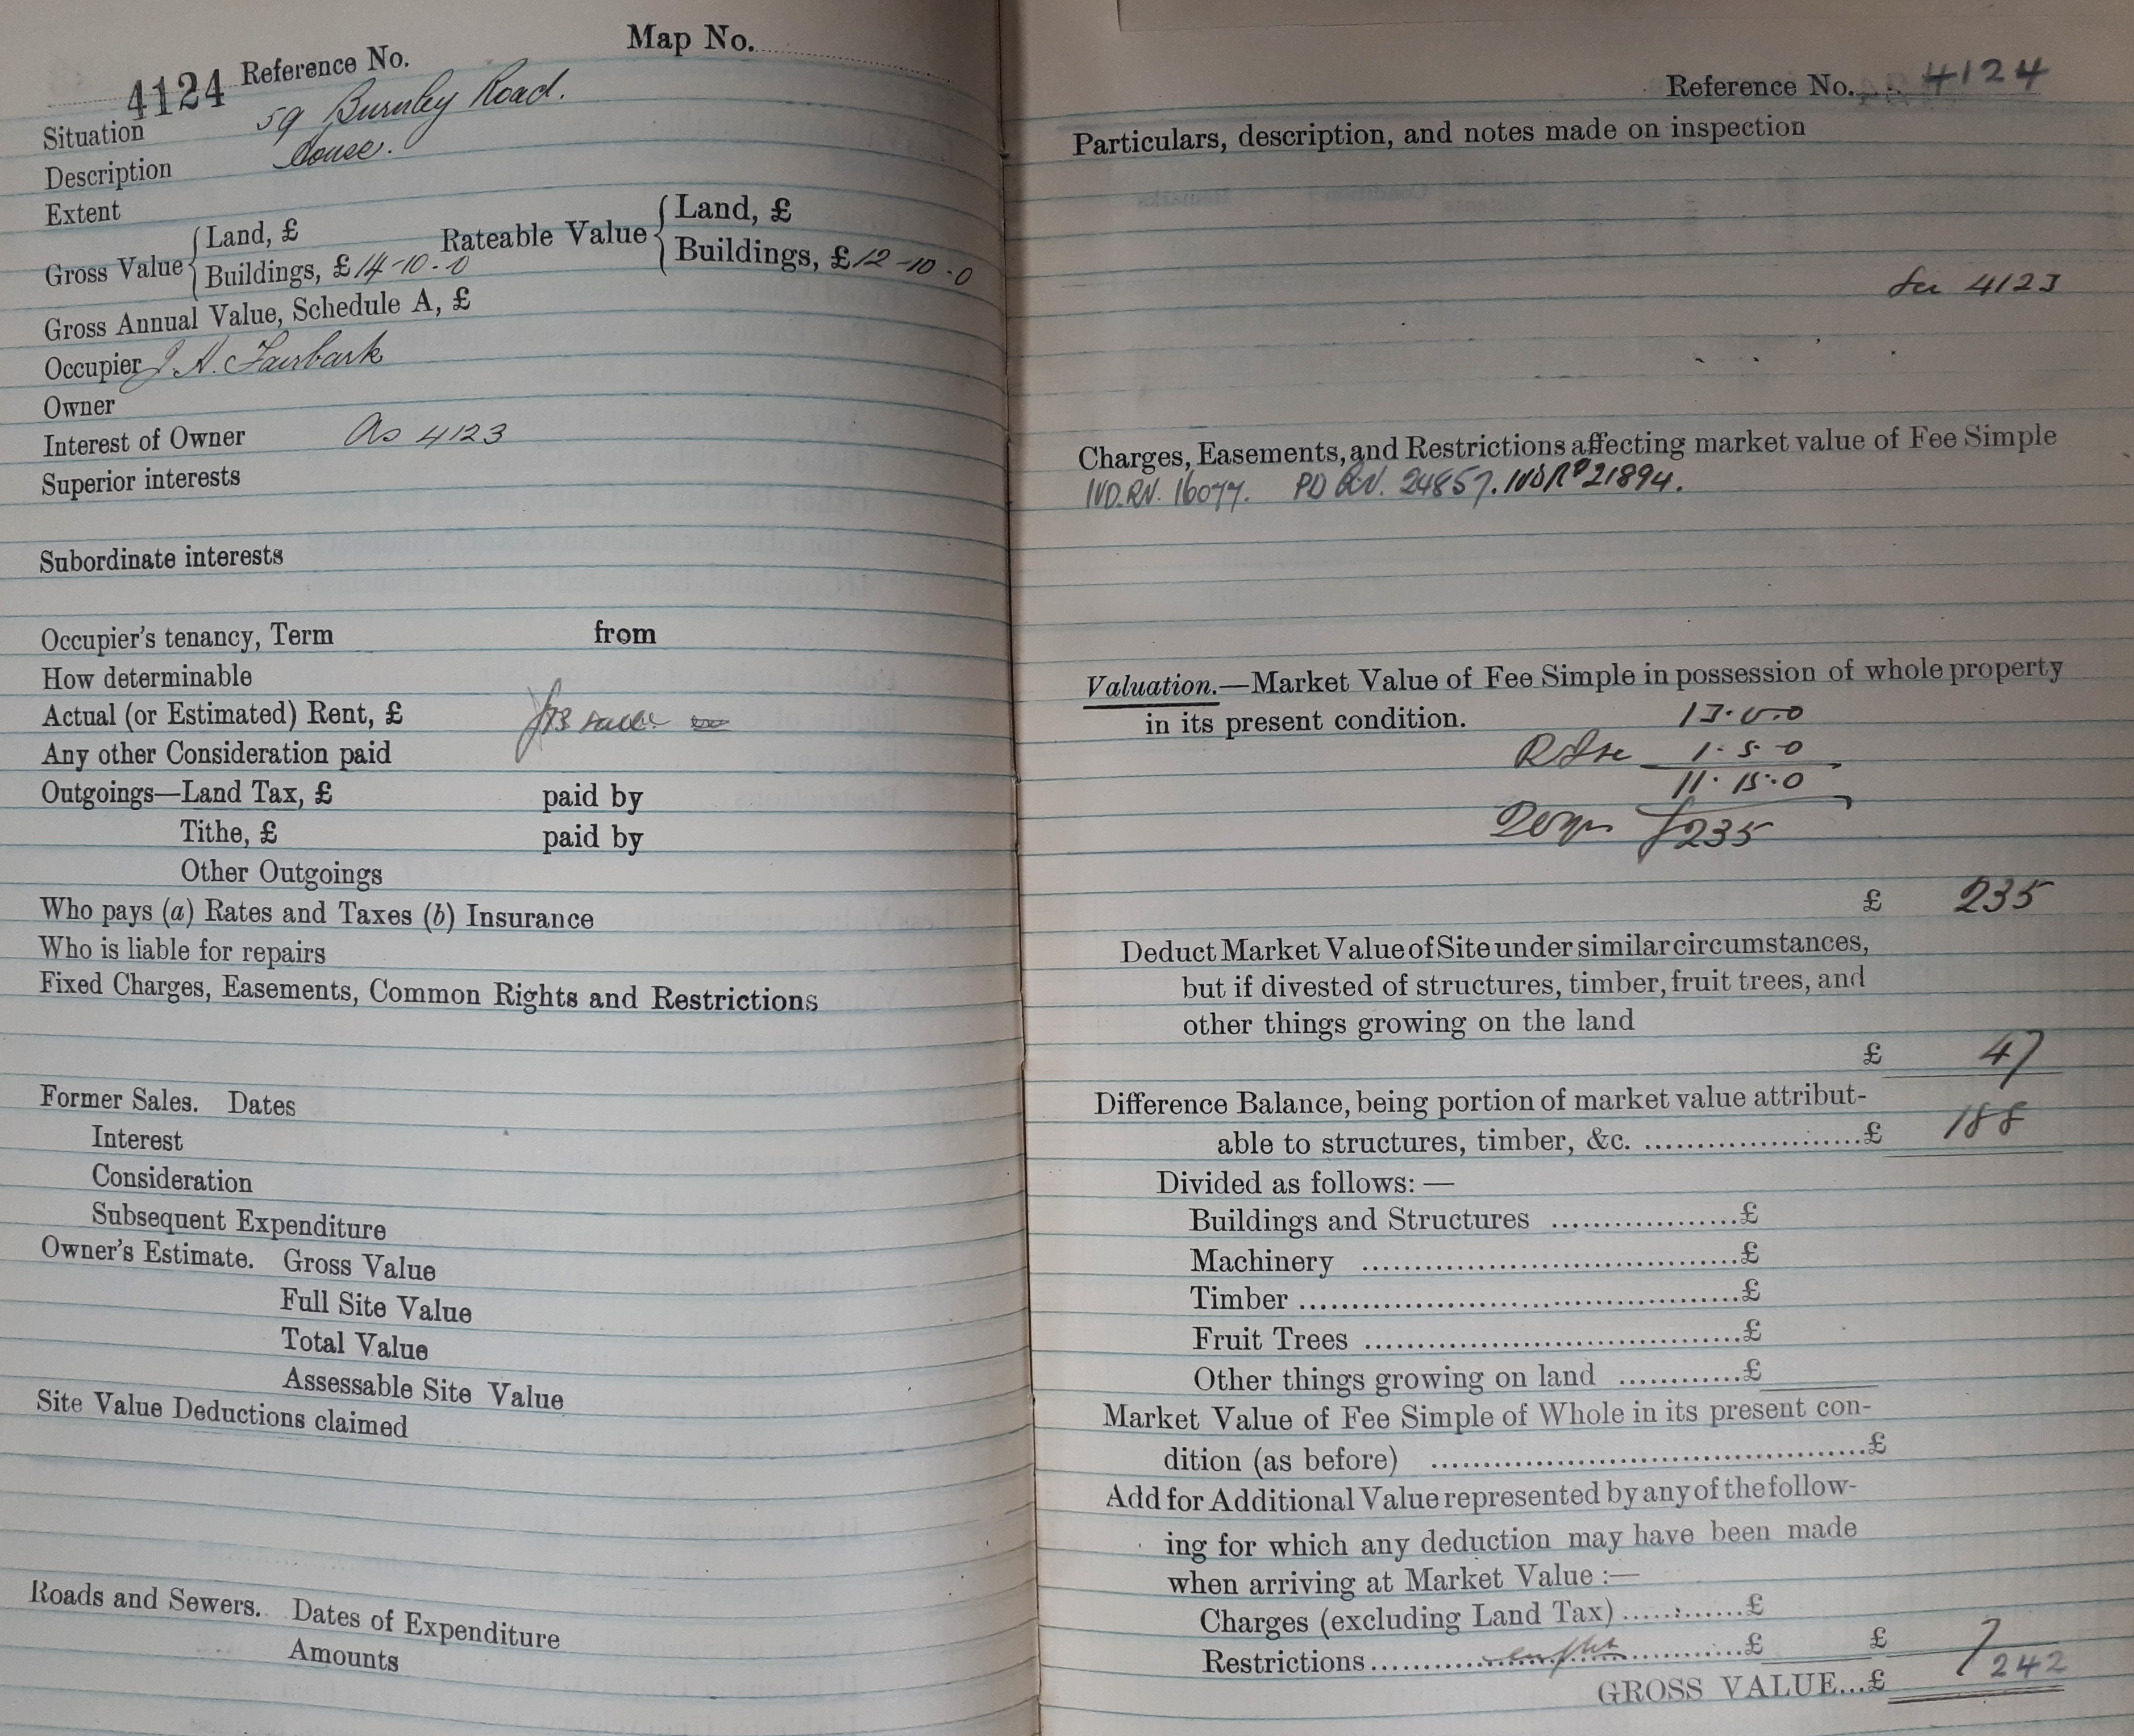 Map No.
4124 Reference No.
Situation 59 Burnley Road.
Description House.
Extent
Gross Value { Land, £
Buildings, £ 14-10-0
Rateable Value { Land, £
Buildings, £ 12-10-0
Gross Annual Value, Schedule A, £
Occupier J A. Fairbank
Owner
Interest of Owner As 4123
Superior interests
Subordinate interests
Occupier's tenancy, Term from
How determinable
Actual (or Estimated) Rent, £
Any other Consideration paid
Outgoings—Land Tax, £ paid by
Tithe, £ paid by
Other Outgoings
Who pays (a) Rates and Taxes (b) Insurance
Who is liable for repairs
Fixed Charges, Easements, Common Rights and Restrictions
Former Sales. Dates
Interest
Consideration
Subsequent Expenditure
Owner's Estimate. Gross Value
Full Site Value
Total Value
Assessable Site Value
Site Value Deductions claimed
Roads and Sewers. Dates of Expenditure
Amounts
Reference No. 4124
Particulars, description, and notes made on inspection
See 4123
Charges, Easements, and Restrictions affecting market value of Fee Simple
IVD.RN. 16077. PD RN. 24857. IVD RN 21894.
Valuation.—Market Value of Fee Simple in possession of whole property
in its present condition.
13.0.0
1.5.0
11.15.0
20 yrs £235
£ 235
Deduct Market Value of Site under similar circumstances,
but if divested of structures, timber, fruit trees, and
other things growing on the land
£ 47
Difference Balance, being portion of market value attribut-
able to structures, timber, &c. ....................£ 188
Divided as follows: —
Buildings and Structures ..................£
Machinery ....................................£
Timber ..........................................£
Fruit Trees ....................................£
Other things growing on land ............£
Market Value of Fee Simple of Whole in its present con-
dition (as before) ..........................................£
Add for Additional Value represented by any of the follow-
ing for which any deduction may have been made
when arriving at Market Value :—
Charges (excluding Land Tax) ............£
Restrictions..............................£ £ 7
GROSS VALUE...£ 242